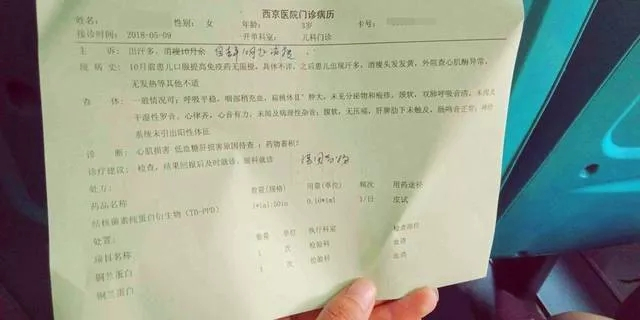 西京医院门诊病历
姓名: 性别: 女 年龄: 3岁 卡号
接诊时间: 2018-05-09 开单科室: 儿科门诊
主 诉: 出汗多，消瘦10月余
现 病 史: 10月前患儿口服提高免疫药无限极，具体不详，之后患儿出现汗多，消瘦头发发黄，外院查心肌酶异常，
无发热等其他不适
查 体: 一般情况可，呼吸平稳，咽部稍充血，扁桃体II°肿大，未见分泌物和疱疹，颈软，双肺呼吸音清，未闻及
干湿性罗音，心律齐，心音有力，未闻及病理性杂音；腹软，无压痛，肝脾肋下未触及，肠鸣音正常；神经
系统未引出阳性体征
诊 断: 心肌损害 低血糖肝损害原因待查；药物蓄积?
诊疗建议: 检查，结果回报后及时就诊，眼科就诊
处方:
药品名称 数量(规格) 用量(单位) 频次 用药途径
结核菌素纯蛋白衍生物 (TB-PPD) 1*1ml:50iu 0.10*1ml 1/日 皮试
处置:
项目名称 数量 单位 执行科室 检查部位
铜兰蛋白 1 次 检验科 血清
铜兰蛋白 1 次 检验科 血清